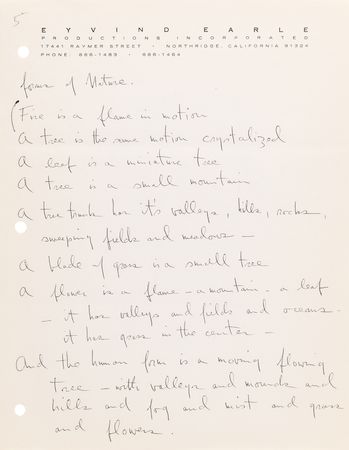 5
EYVIND EARLE
PRODUCTIONS INCORPORATED
17441 RAYMER STREET • NORTHRIDGE, CALIFORNIA 91324
PHONE: 886-1483 • 886-1484
Forms of Nature.
(Fire is a flame in motion
A tree is the same motion crystalized
A leaf is a miniature tree
A tree is a small mountain
A tree trunk has it's valleys, hills, rocks,
sweeping fields and meadows —
A blade of grass is a small tree
A flower is a flame – a mountain – a leaf
– it has valleys and fields and oceans.
it has grass in the center –
And the human form is a moving flowing
tree – with valleys and mounds and
hills and fog and mist and grass
and flowers.